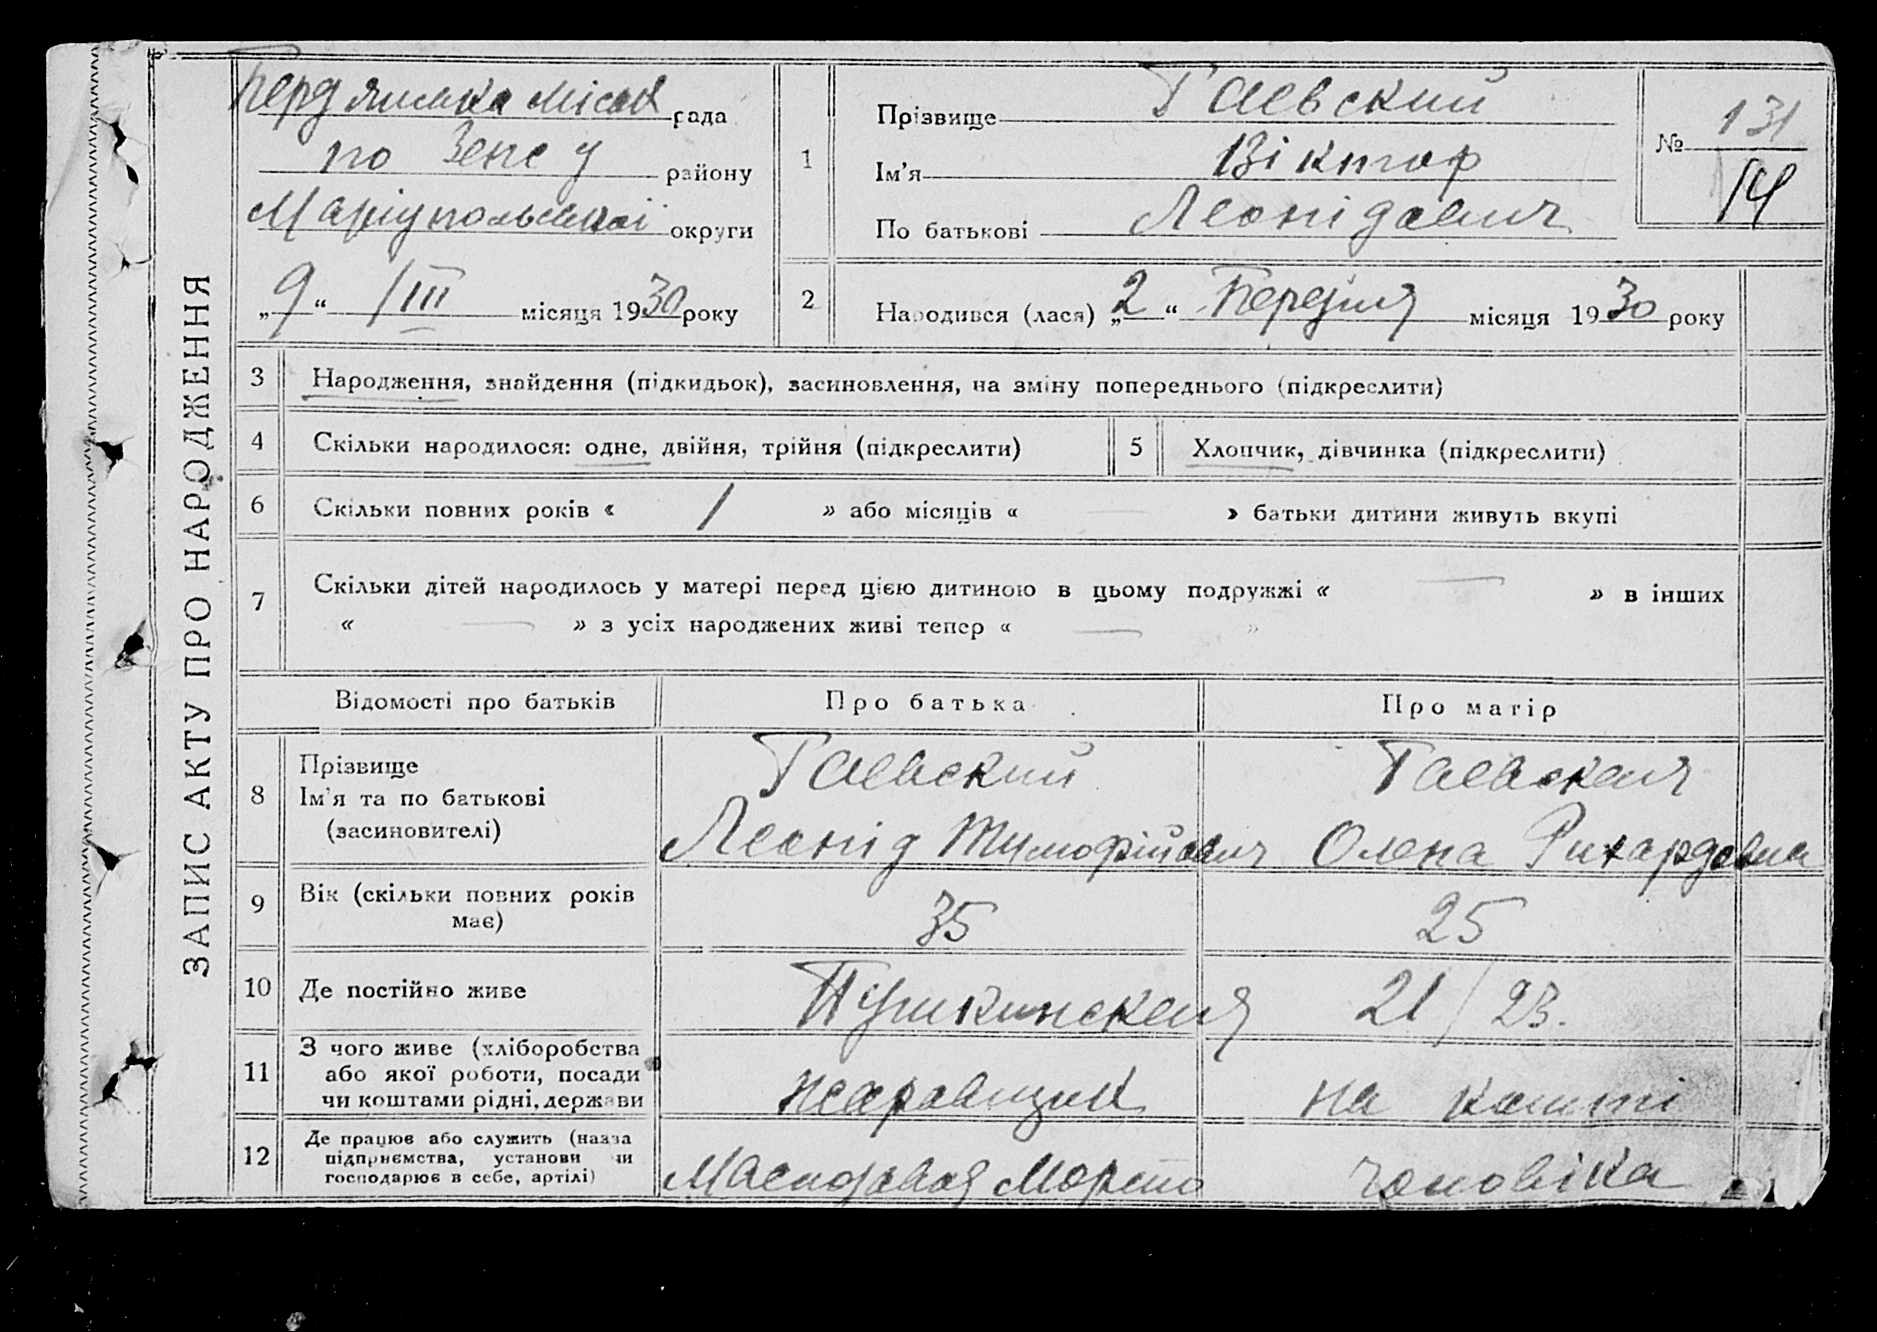 ЗАПИС АКТУ ПРО НАРОДЖЕННЯ
Бердянська Міська рада
по Запс у району
Маріупольської округи
„9“ /III місяця 1930 року
1
Прізвище Гаевский
Ім'я Віктор
По батькові Леонідович
№ 131
14
2
Народився (лася) „2“ Березня місяця 1930 року
3 Народження, знайдення (підкидьок), засиновлення, на зміну попереднього (підкреслити)
4 Скільки народилося: одне, двійня, трійня (підкреслити)
5 Хлопчик, дівчинка (підкреслити)
6 Скільки повних років « / » або місяців « — » батьки дитини живуть вкупі
7 Скільки дітей народилось у матері перед цією дитиною в цьому подружжі « — » в інших
« — » з усіх народжених живі тепер « — »
Відомості про батьків Про батька Про матір
8 Прізвище
Ім'я та по батькові
(засиновителі)
Гаевский
Леонід Тимофійович
Гаевская
Олена Рихардовна
9 Вік (скільки повних років
має)
35 25
10 Де постійно живе Пушкинская 21/23.
11 З чого живе (хліборобства
або якої роботи, посади
чи коштами рідні, держави
на кошти
12 Де працює або служить (назва
підприємства, установи чи
господарює в себе, артілі)
чоловіка